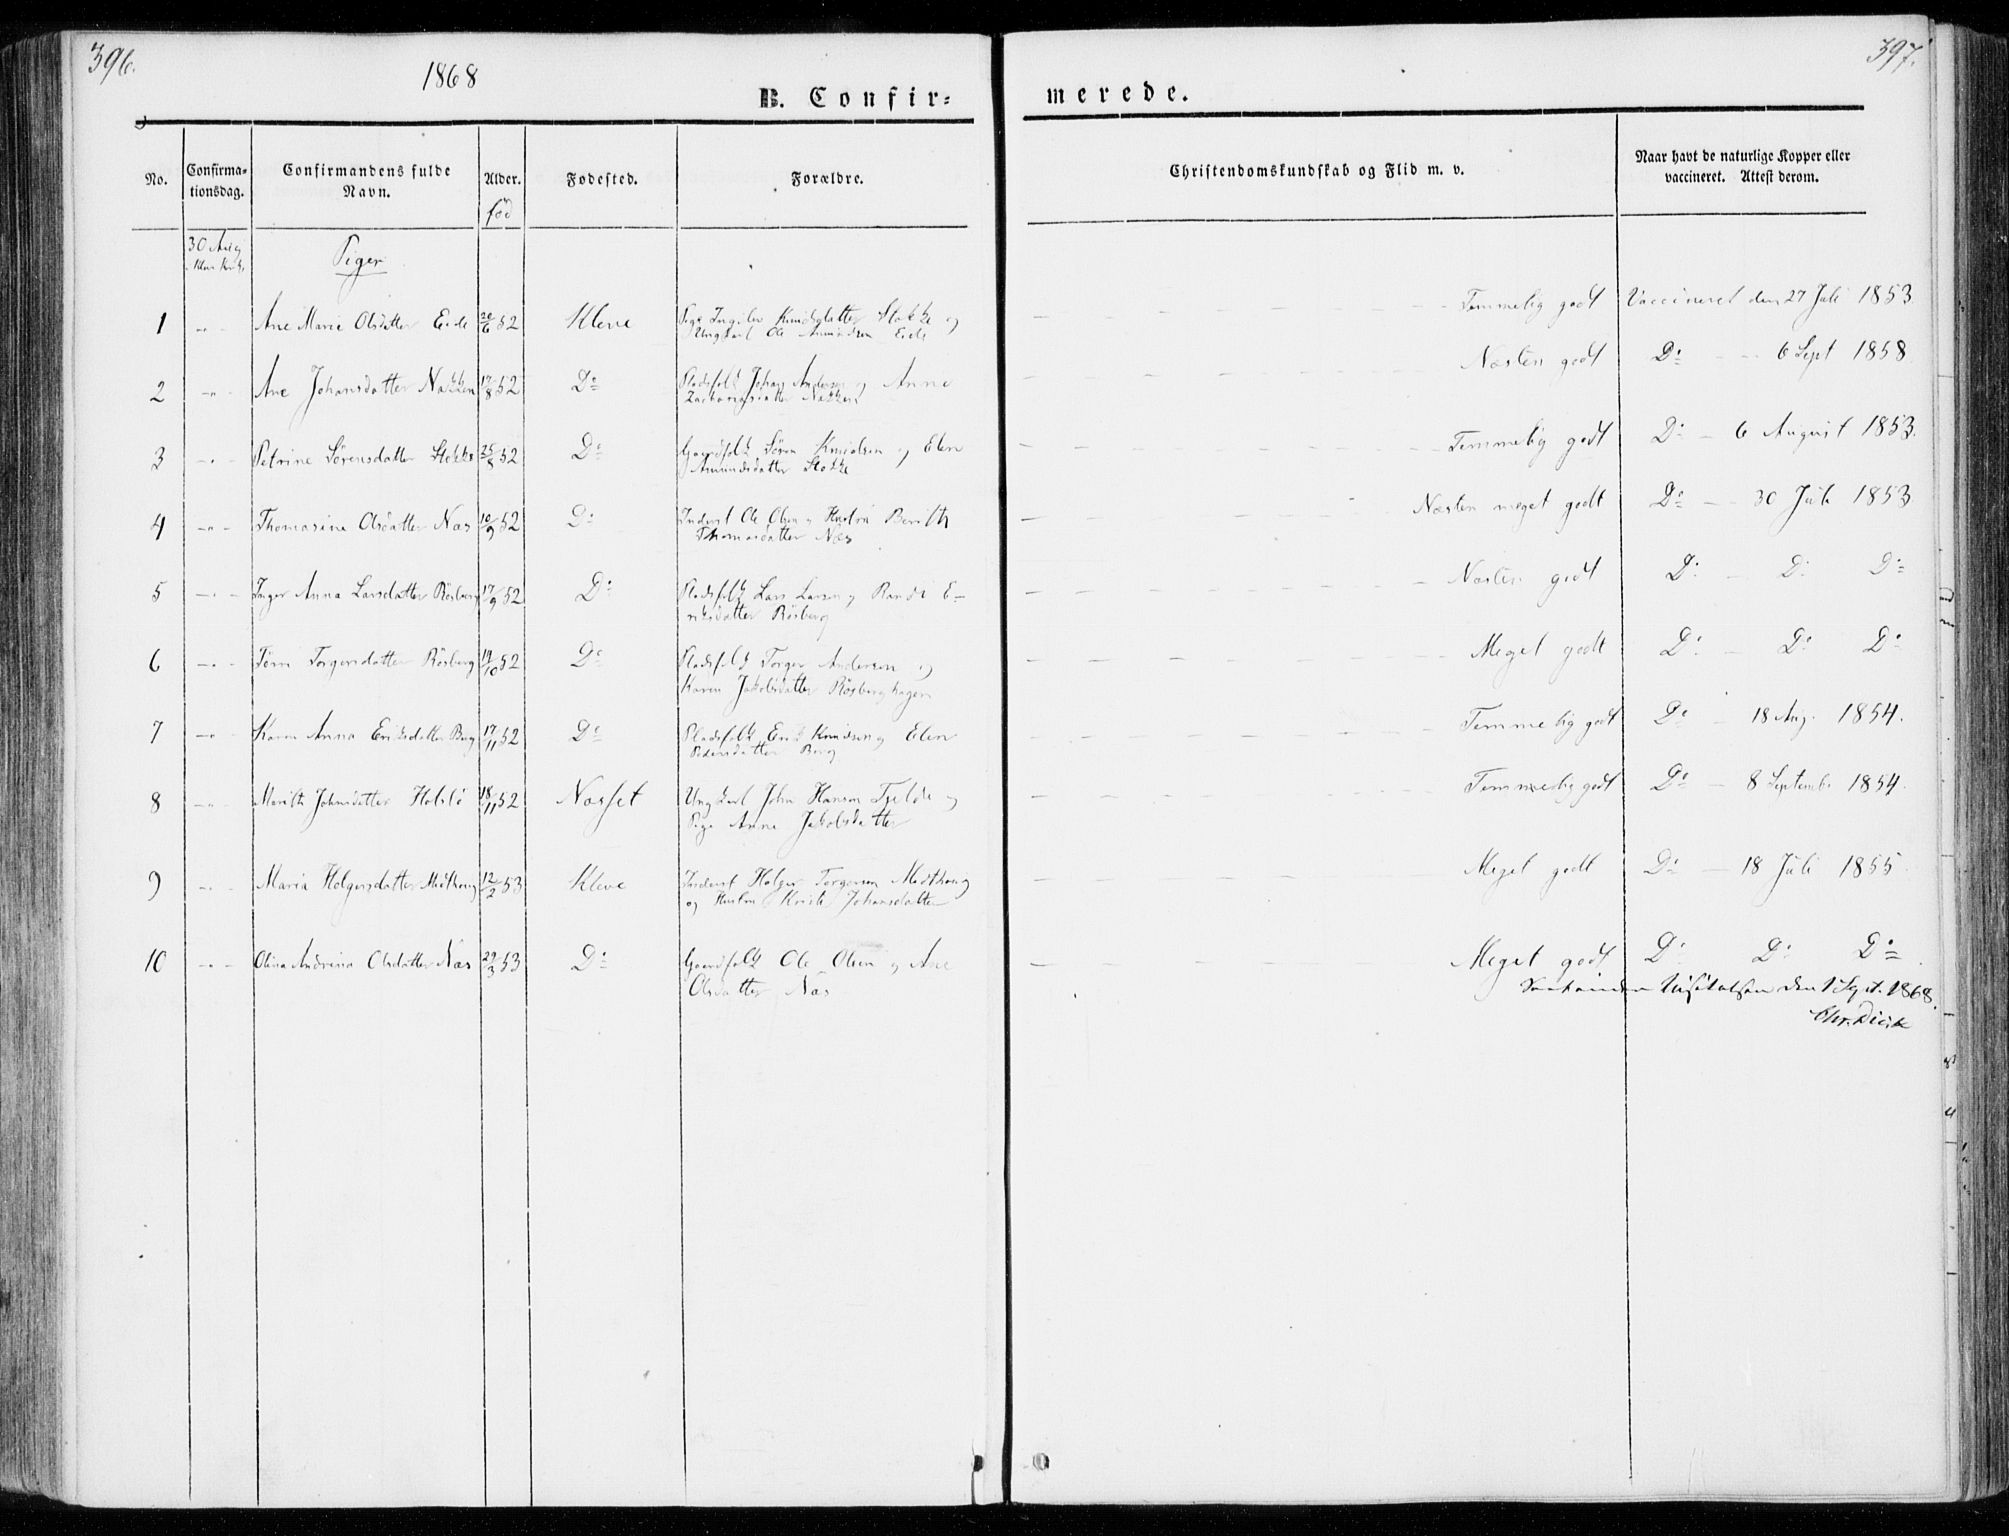 396.
1868
B. Confir=
No.
Confirma=
tionsdag.
Confirmandens fulde
Navn.
Alder.
fød
Fødested.
Forældre.
30 Aug
Piger
1 Ane Marie Olsdatter Eide 52 Kleve Pige Ingebor Knudsdatter Stokke og
Ungkarl Ole Amundsen Eide
2 Ane Johansdatter Nakken 17/8 52 Do Pladsfolk Johan Andersen og Anne
Zachariasdatter Nakken
3 Petrine Sørensdatter Stokke 25/8 52 Do Gaardfolk Søren Knudsen og Elen
Amundsdatter Stokke
4 Thomasine Olsdatter Næs 10/9 52 Do Inderst Ole Olsen og Hustru Berith
Thomasdatter Næs
5 Inger Anna Larsdatter Røsberg 17/9 52 Do Pladsfolk Lars Larsen og Randi E-
riksdatter Røsberg
6 Torgersdatter Røsberg 14/10 52 Do Pladsfolk Torger Andersen og
Karen Jakobsdatter Røsberghagen
7 Karen Anna Eriksdatter Berg 17/11 52 Do Pladsfolk Erik Knudsen og Elen
Pedersdatter Berg
8 Marith Johnsdatter Holslø 18/11 52 Næsset Ungkarl John Hansen Tjelde og
Pige Anne Jakobsdatter
9 Maria Holgersdatter Midthoug 12/2 53 Kleve Inderst Holger Torgersen Midthoug
og Hustru Kristi Johansdatter
10 Olina Andrina Olsdatter Næs 29/3 53 Do Gaardfolk Ole Olsen og Ane
Olsdatter Næs
397.
merede.
Christendomskundskab og Flid m. v.
Naar havt de naturlige Kopper eller
vaccineret. Attest derom.
Temmelig godt Vaccineret den 27 Juli 1853
Næsten godt Do - 6 Sept 1858.
Temmelig godt Do - 6 August 1853.
Næsten meget godt Do - 30 Juli 1853
Næsten godt Do - Do Do
Meget godt Do - Do Do
Temmelig godt Do - 18 Aug. 1854.
Temmelig godt Do - 8 Septembr 1854.
Meget godt Do - 18 Juli 1855.
Meget godt Do Do Do
Visitatsen den 1 Sept. 1868.